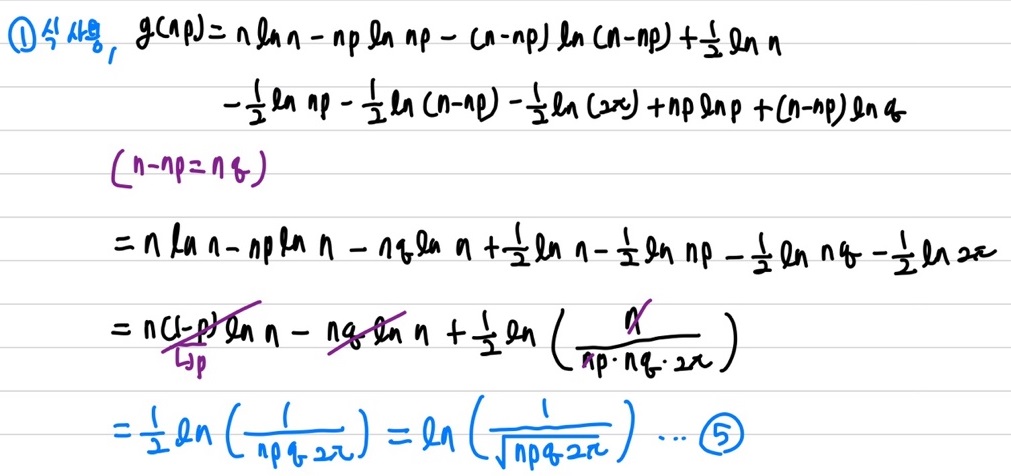 ① 식 사용, g(np) = n ln n - np ln np - (n-np) ln (n-np) + 1/2 ln n
- 1/2 ln np - 1/2 ln (n-np) - 1/2 ln (2π) + np ln p + (n-np) ln q
(n-np = nq)
= n ln n - np ln n - nq ln n + 1/2 ln n - 1/2 ln np - 1/2 ln nq - 1/2 ln 2π
= n(1-p) ln n - nq ln n + 1/2 ln (n / (np · nq · 2π))
↳p
= 1/2 ln (1 / (npq 2π)) = ln (1 / √(npq 2π)) ... ⑤